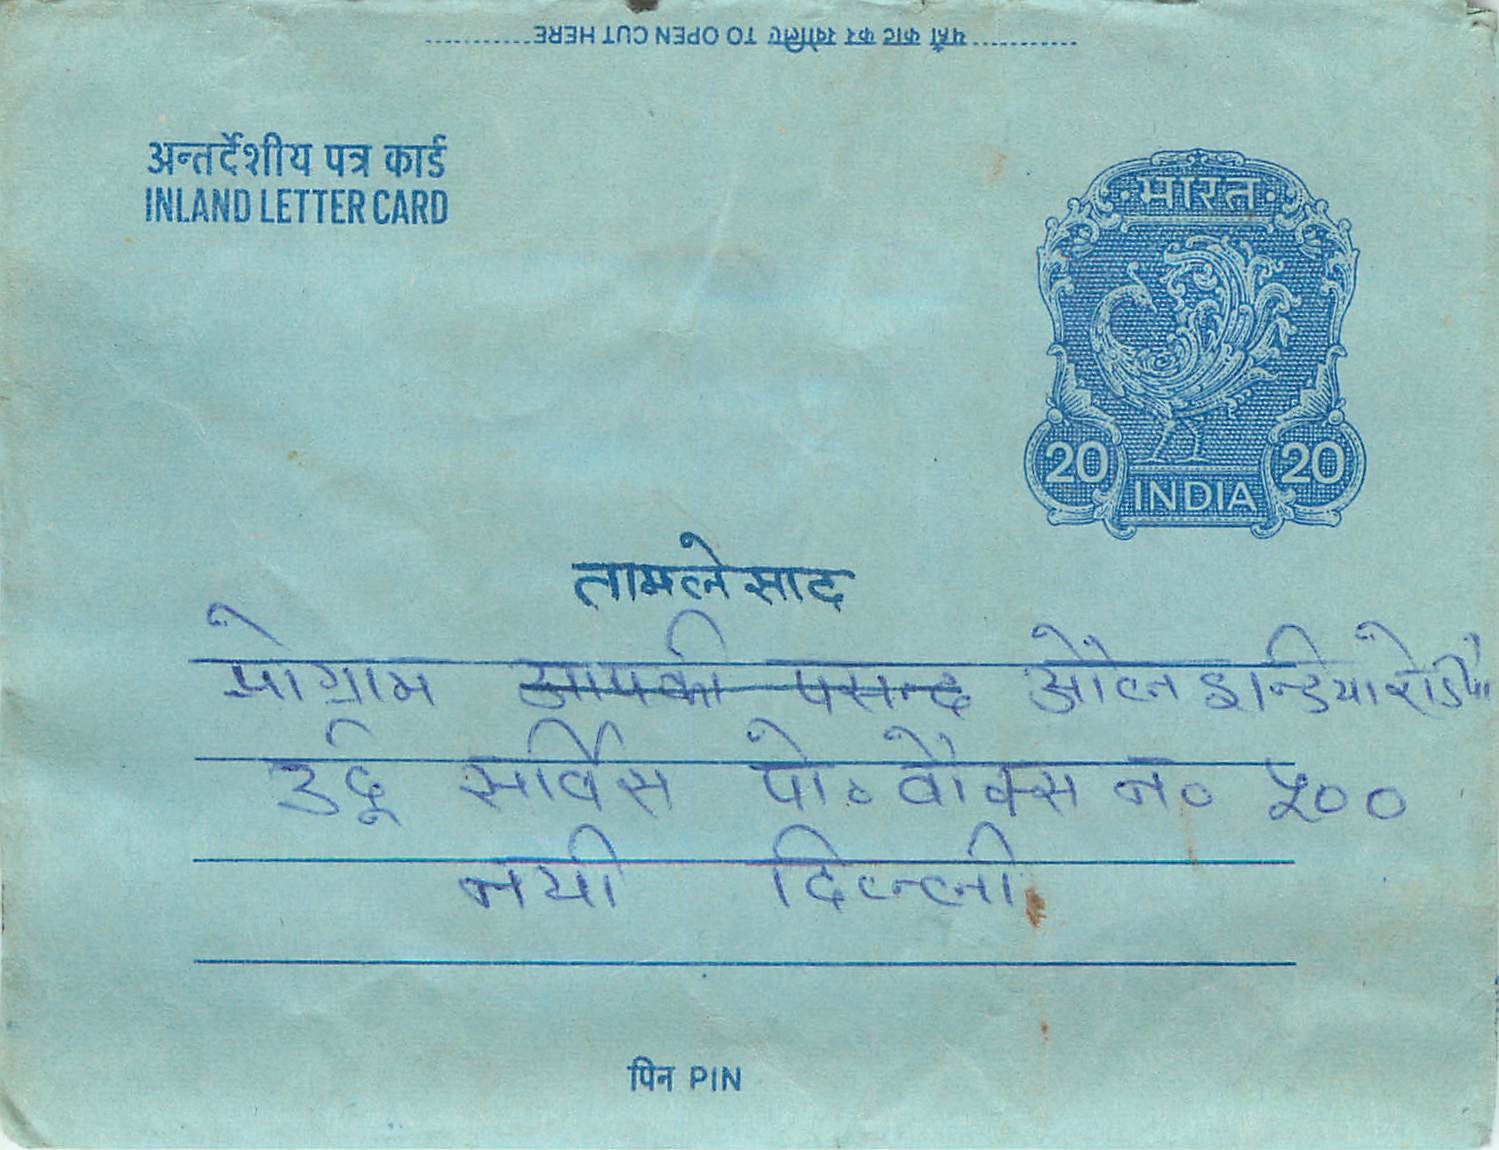 यहाँ काट कर खोलिए TO OPEN CUT HERE
अन्तर्देशीय पत्र कार्ड
INLAND LETTER CARD
भारत
20 20
INDIA
तामले साद
प्रोग्राम आपकी पसन्द औल इन्डिया रेडियो
उर्दू सर्विस पो॰ बौक्स न॰ ५००
नयी दिल्ली
पिन PIN